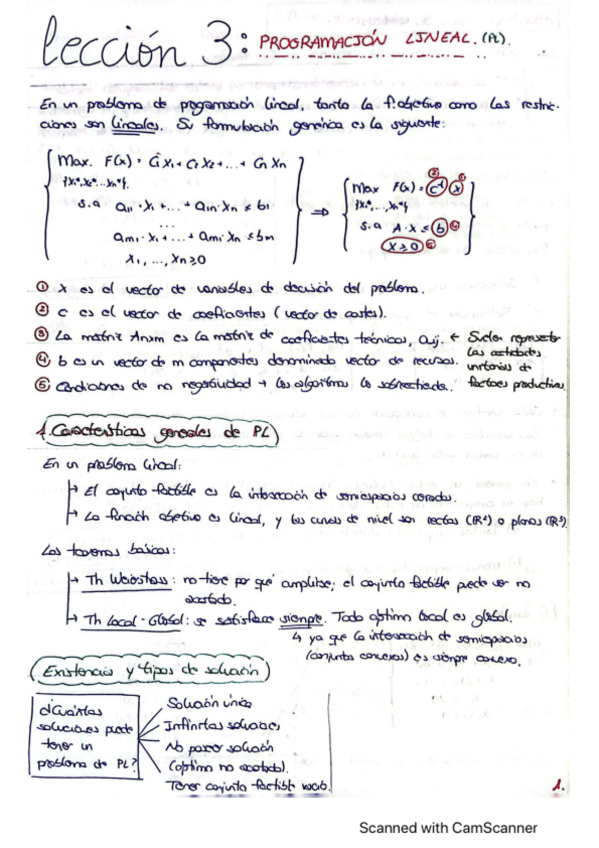 Lección 3: PROGRAMACIÓN LINEAL. (PL).
En un problema de programación lineal, tanto la f. objetivo como las restric-
ciones son lineales. Su formulación genérica es la siguiente:
Max. F(x) = C₁X₁ + C₂X₂ + ... + CnXn
{X₁*, X₂*... Xn*}.
s.a a₁₁·X₁ + ... + a₁n·Xn ≤ b₁
... + ...
am₁·X₁ + ... + am·Xn ≤ bm
X₁, ..., Xn ≥ 0
⇒
Max F(x) = Cᵗ X
{X₁*, ..., Xn*}
s.a A·X ≤ b
X ≥ 0
① X es el vector de variables de decisión del problema.
② C es el vector de coeficientes (vector de costes).
③ La matriz Anxm es la matriz de coeficientes técnicos, aij. ← Suelen representar
las cantidades
unitarias de
factores productivos.
④ b es un vector de m componentes denominado vector de recursos.
⑤ Condiciones de no negatividad → los algoritmos lo
1. Características generales de PL
En un problema lineal:
→ El conjunto factible es la intersección de semiespacios cerrados.
→ La función objetivo es lineal, y las curvas de nivel son rectas (R²) o planos (R³).
Los teoremas básicos:
→ Th Weierstrass: no tiene por qué cumplirse; el conjunto factible puede ser no
acotado.
→ Th Local-Global: se satisface siempre. Todo óptimo local es global.
↳ ya que la intersección de semiespacios
(conjuntos convexos) es siempre convexo.
Existencia y tipos de solución
¿Cuántas
soluciones puede
tener un
problema de PL?
Solución única
Infinitas soluciones
No poseer solución
(óptimo no acotado).
Tener conjunto factible vacío.
1.
Scanned with CamScanner